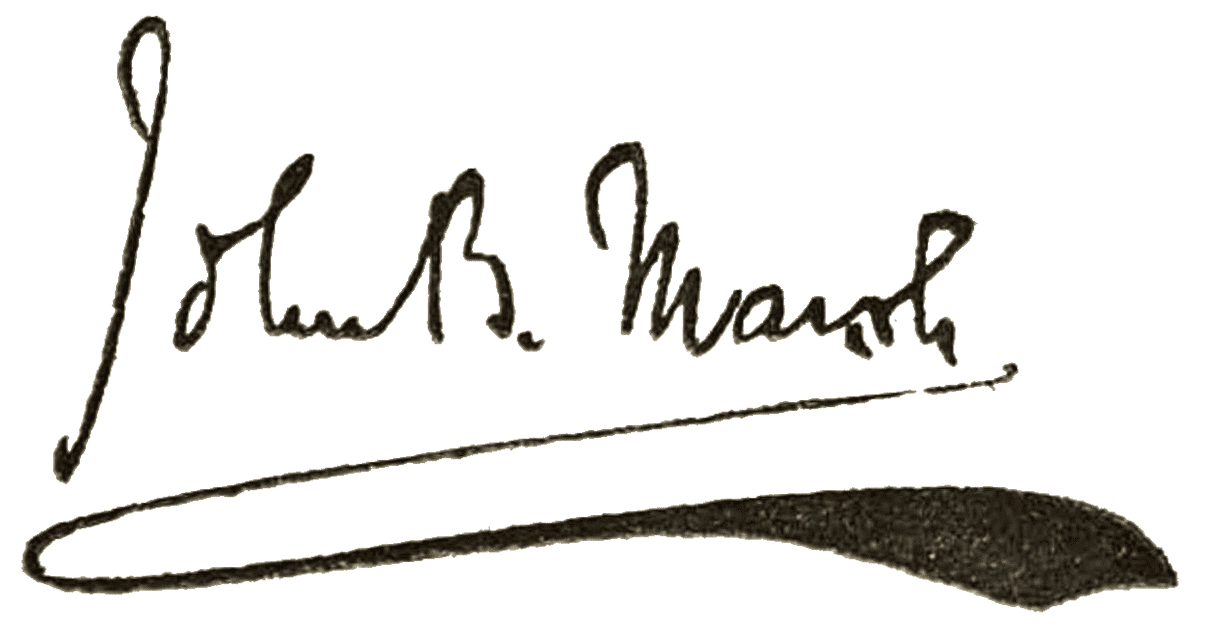 John B. Marsh